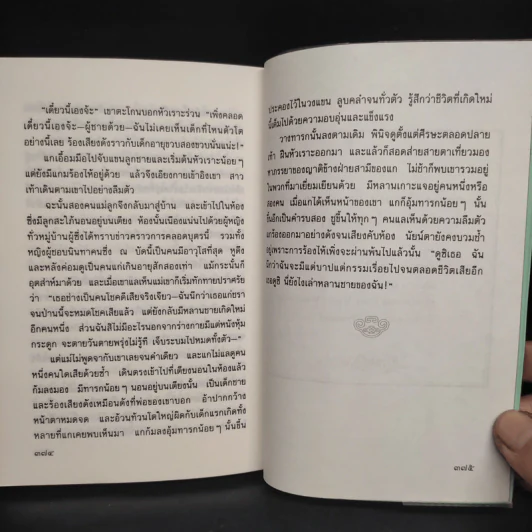 "เดี๋ยวนี้เองจ้ะ" เขาตะโกนบอกหัวเราะร่วน "เพิ่งคลอด
เดี๋ยวนี้เองจ้ะ—ผู้ชายด้วย—ฉันไม่เคยเห็นเด็กที่ไหนตัวโต
อย่างนี้เลย ร้องเสียงดังราวกับเด็กอายุขวบสองขวบนั่นแน่ะ!"
แกเอื้อมมือไปจับแขนลูกชายและเริ่มต้นหัวเราะน้อย ๆ
แต่ยังมีแกมร้องไห้อยู่ด้วย แล้วจึงเอียงกายเข้าอิงเขา สาว
เท้าเดินตามเขาไปอย่างลืมตัว
ฉะนั้นสองคนแม่ลูกจึงกลับมาสู่บ้าน และเข้าไปในห้อง
ซึ่งมีลูกสะใภ้นอนอยู่บนเตียง ห้องนั้นเนืองแน่นไปด้วยผู้หญิง
ทั่วหมู่บ้านผู้ซึ่งได้ทราบข่าวคราวการคลอดบุตรนี้ รวมทั้ง
หญิงผู้ชอบนินทาคนซึ่ง ณ บัดนี้เป็นคนมีอาวุโสที่สุด หูตึง
และหลังค่อมดูเป็นคนแก่เกินอายุสักสองเท่า แม้กระนั้นก็
อุตส่าห์มาด้วย และเมื่อเขาแลเห็นแม่เขาก็เริ่มทักทายปราศรัย
ว่า "เธอช่างเป็นคนโชคดีเสียจริงเจียว—ฉันนึกว่าเธอแก่ชรา
จนป่านนี้จะหมดโชคเสียแล้ว แต่ยังกลับมีหลานชายเกิดใหม่
อีกคนหนึ่ง ส่วนฉันสิไม่มีอะไรนอกจากร่างกายมีแต่หนังหุ้ม
กระดูก จะตายวันตายพรุ่งไม่รู้ที เจ็บระบมไปหมดทั้งตัว—"
แต่แม่ไม่พูดจากับเขาเลยจนคำเดียว และแกไม่แลดูคน
หนึ่งคนใดเสียด้วยซ้ำ เดินตรงเข้าไปที่เตียงนอนในห้องแล้ว
ก้มลงมอง มีทารกน้อย ๆ นอนอยู่บนเตียงนั้น เป็นเด็กชาย
และร้องเสียงดังเหมือนดังที่พ่อของเขาบอก อ้าปากกว้าง
หน้าตาหมดจด และอ้วนท้วนโตใหญ่ผิดกับเด็กแรกเกิดทั้ง
หลายที่แกเคยพบเห็นมา แกก้มลงอุ้มทารกน้อย ๆ นั้นขึ้น
๓๗๔
ประคองไว้ในวงแขน ลูบคลำจนทั่วตัว รู้สึกว่าชีวิตที่เกิดใหม่
นี้เต็มไปด้วยความอบอุ่นและแข็งแรง
วางทารกนั้นลงตามเดิม พินิจดูตั้งแต่ศีรษะตลอดปลาย
เท้า ฝืนหัวเราะออกมา แล้วก็สอดส่ายสายตาเที่ยวมอง
หาภรรยาของญาติข้างฝ่ายสามีของแก ไม่ช้าก็พบเขารวมอยู่
ในพวกที่มาเยี่ยมเยียนด้วย มีหลานเกาะแจอยู่คนหนึ่งหรือ
สองคน เมื่อแกได้เห็นหน้าเขา แกก็อุ้มทารกน้อย ๆ นั้น
ขึ้นอีกเป็นคำรบสอง ชูขึ้นให้ทุก ๆ คนแลเห็นด้วยความลืมตัว
แกร้องออกมาอย่างดังจนเสียงคับห้อง นัยน์ตายังคงบวมช้ำ
อยู่เพราะการร้องไห้เพิ่งจะผ่านพ้นไปแล้วนั้น "ดูซิเธอ ฉัน
นึกว่าฉันจะมีแต่บาปแต่กรรมเรื่อยไปจนตลอดชีวิตเสียอีก
เธอดูซิ นี่ยังไงเล่าหลานชายของฉัน!"
๓๗๕